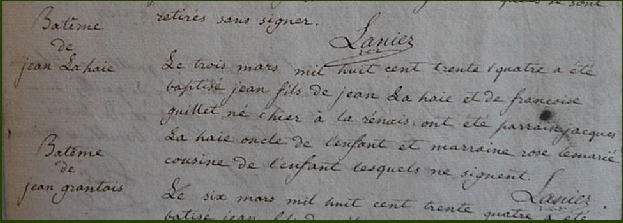 retirés sans signer.
Lanier
Batême
de
jean La haie
Le trois mars mil huit cent trente quatre a été
baptisé jean fils de jean La haie et de francoise
guillet né hier à la renais, ont été parrain jacques
La haie oncle de l'enfant et marraine rose lemarié
cousine de l'enfant lesquels ne signent.
Lanier
Batême
de
jean grantais
Le six mars mil huit cent trente quatre a été
batisé jean fils de